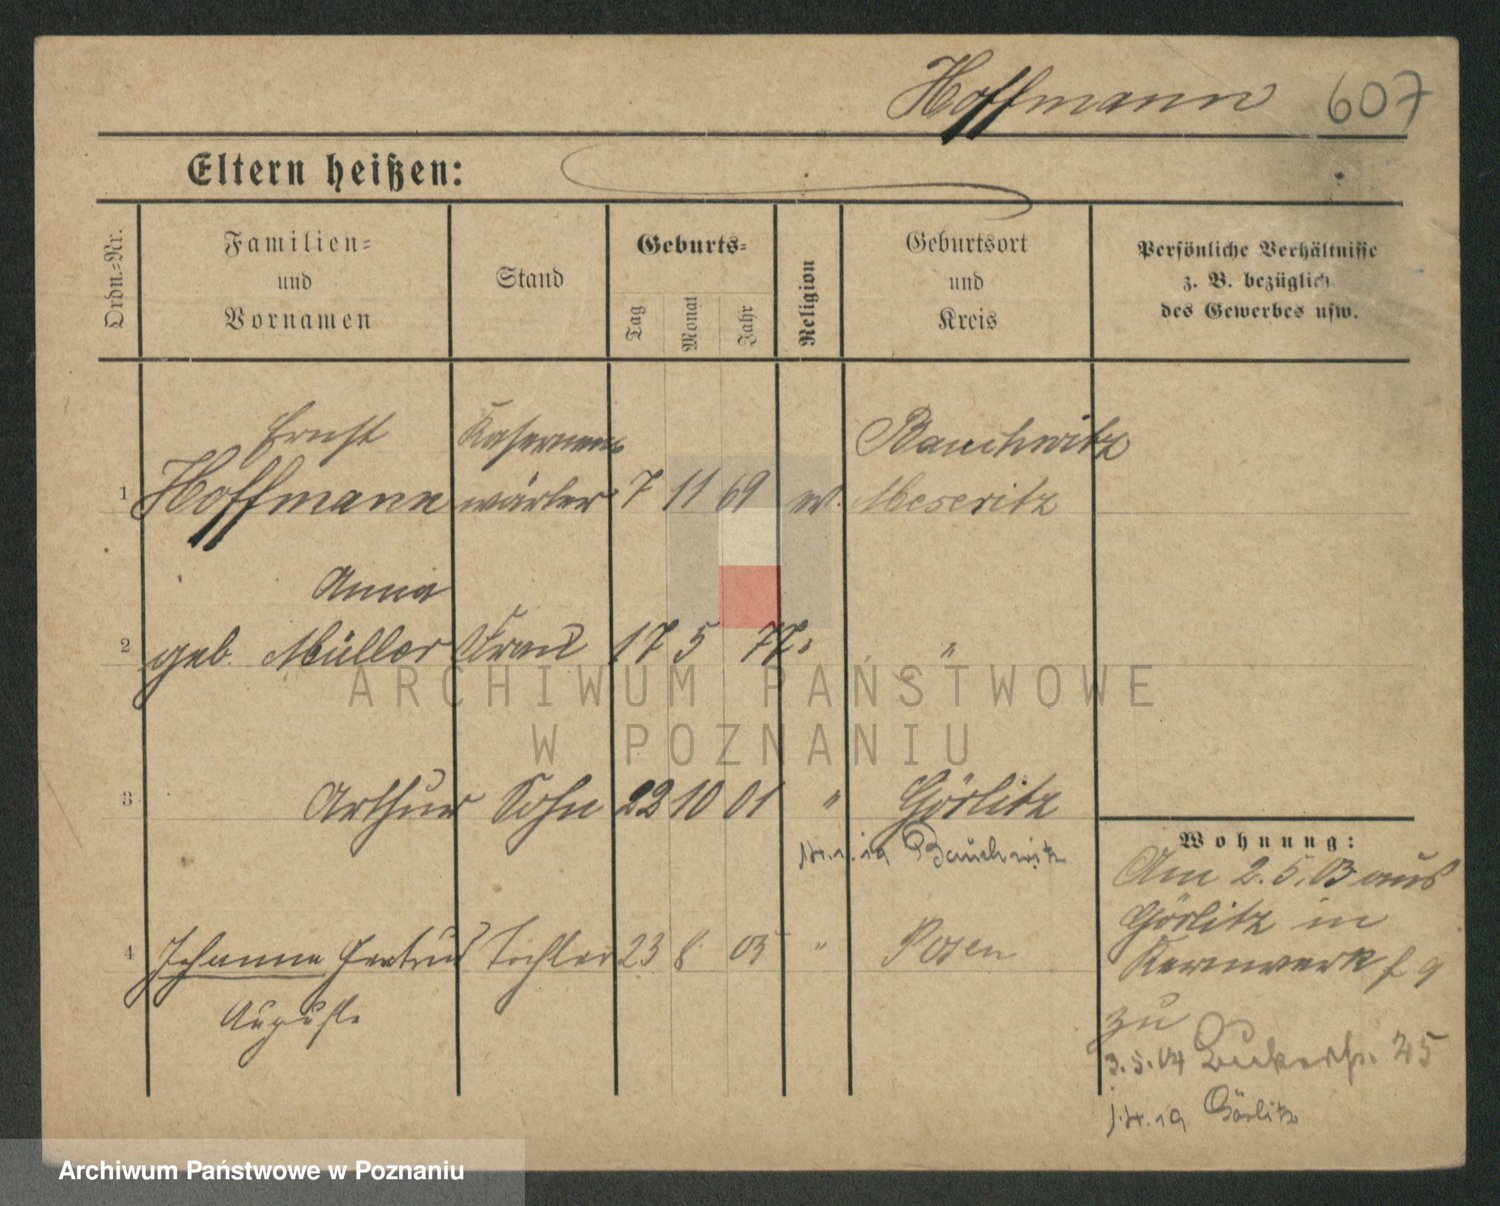 Hoffmann 607
Eltern heißen:
Ordn.-Nr.
Familien-
und
Vornamen
Stand
Geburts-
Tag
Monat
Jahr
Religion
Geburtsort
und
Kreis
Persönliche Verhältnisse
z. B. bezüglich
des Gewerbes usw.
Ernst Kasernen Bauchwitz
1 Hoffmann wärter 7 11 69 ev. Meseritz
Anna
2 geb. Müller Frau 17 5 77 " "
3 Arthur Sohn 22 10 01 " Görlitz
19 Bauchwitz
4 Johanna Gertrud Tochter 23 8 05 " Posen
Auguste
Wohnung:
Am 2.5.03 aus
Görlitz in
Kernwerk f 9
zu
3.5.04 25
19 Görlitz
ARCHIWUM PAŃSTWOWE
W POZNANIU
Archiwum Państwowe w Poznaniu